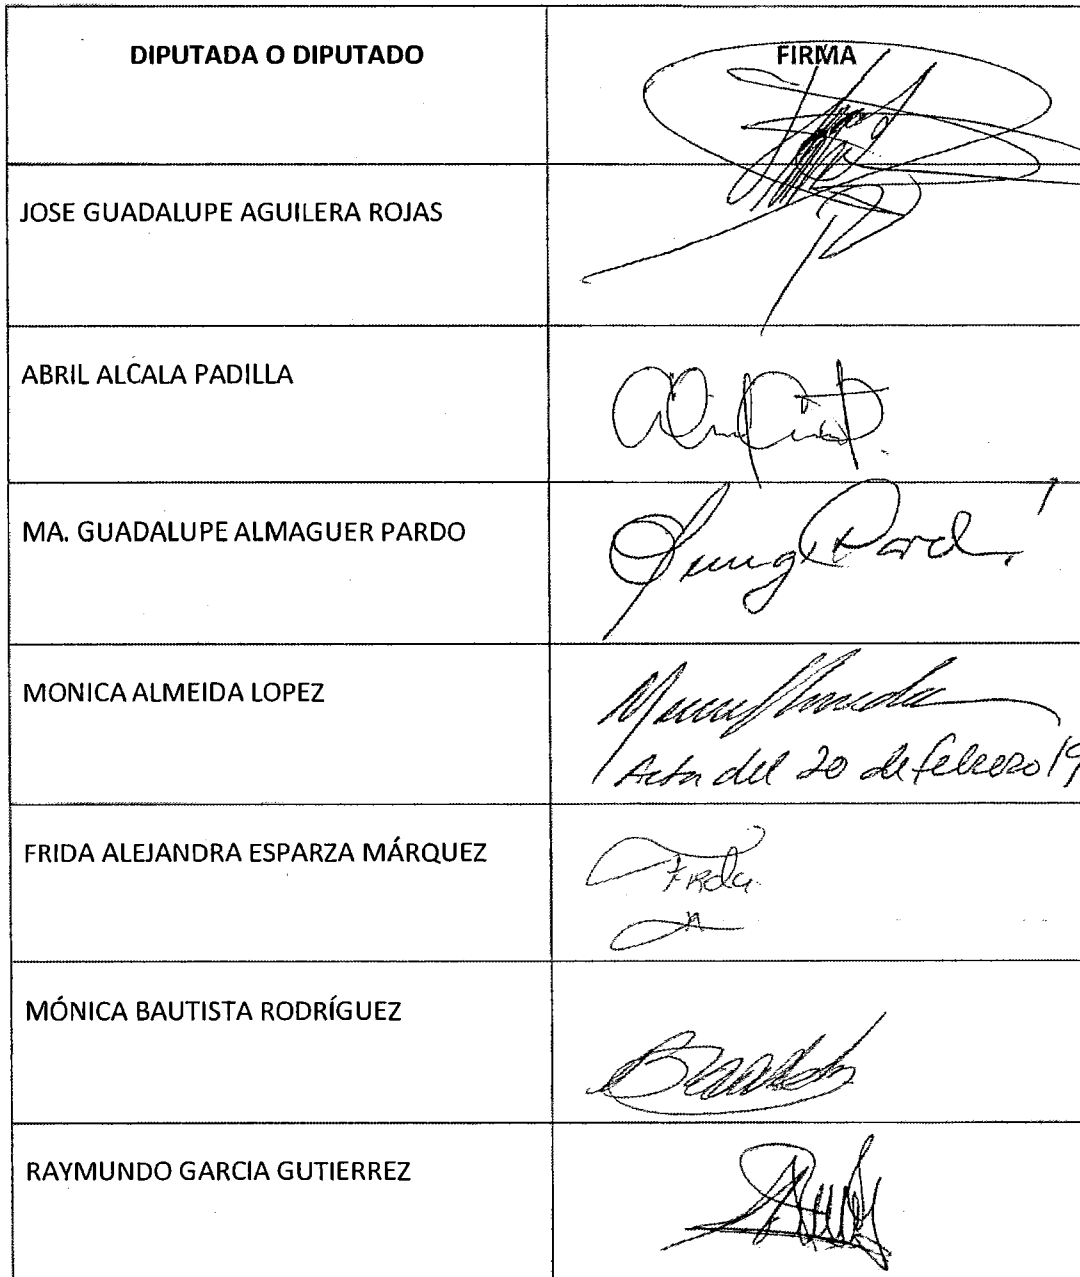 DIPUTADA O DIPUTADO
FIRMA
JOSE GUADALUPE AGUILERA ROJAS
ABRIL ALCALA PADILLA
MA. GUADALUPE ALMAGUER PARDO
Pardo
MONICA ALMEIDA LOPEZ
Acta del 20 de febrero 19
FRIDA ALEJANDRA ESPARZA MÁRQUEZ
Frida
MÓNICA BAUTISTA RODRÍGUEZ
RAYMUNDO GARCIA GUTIERREZ